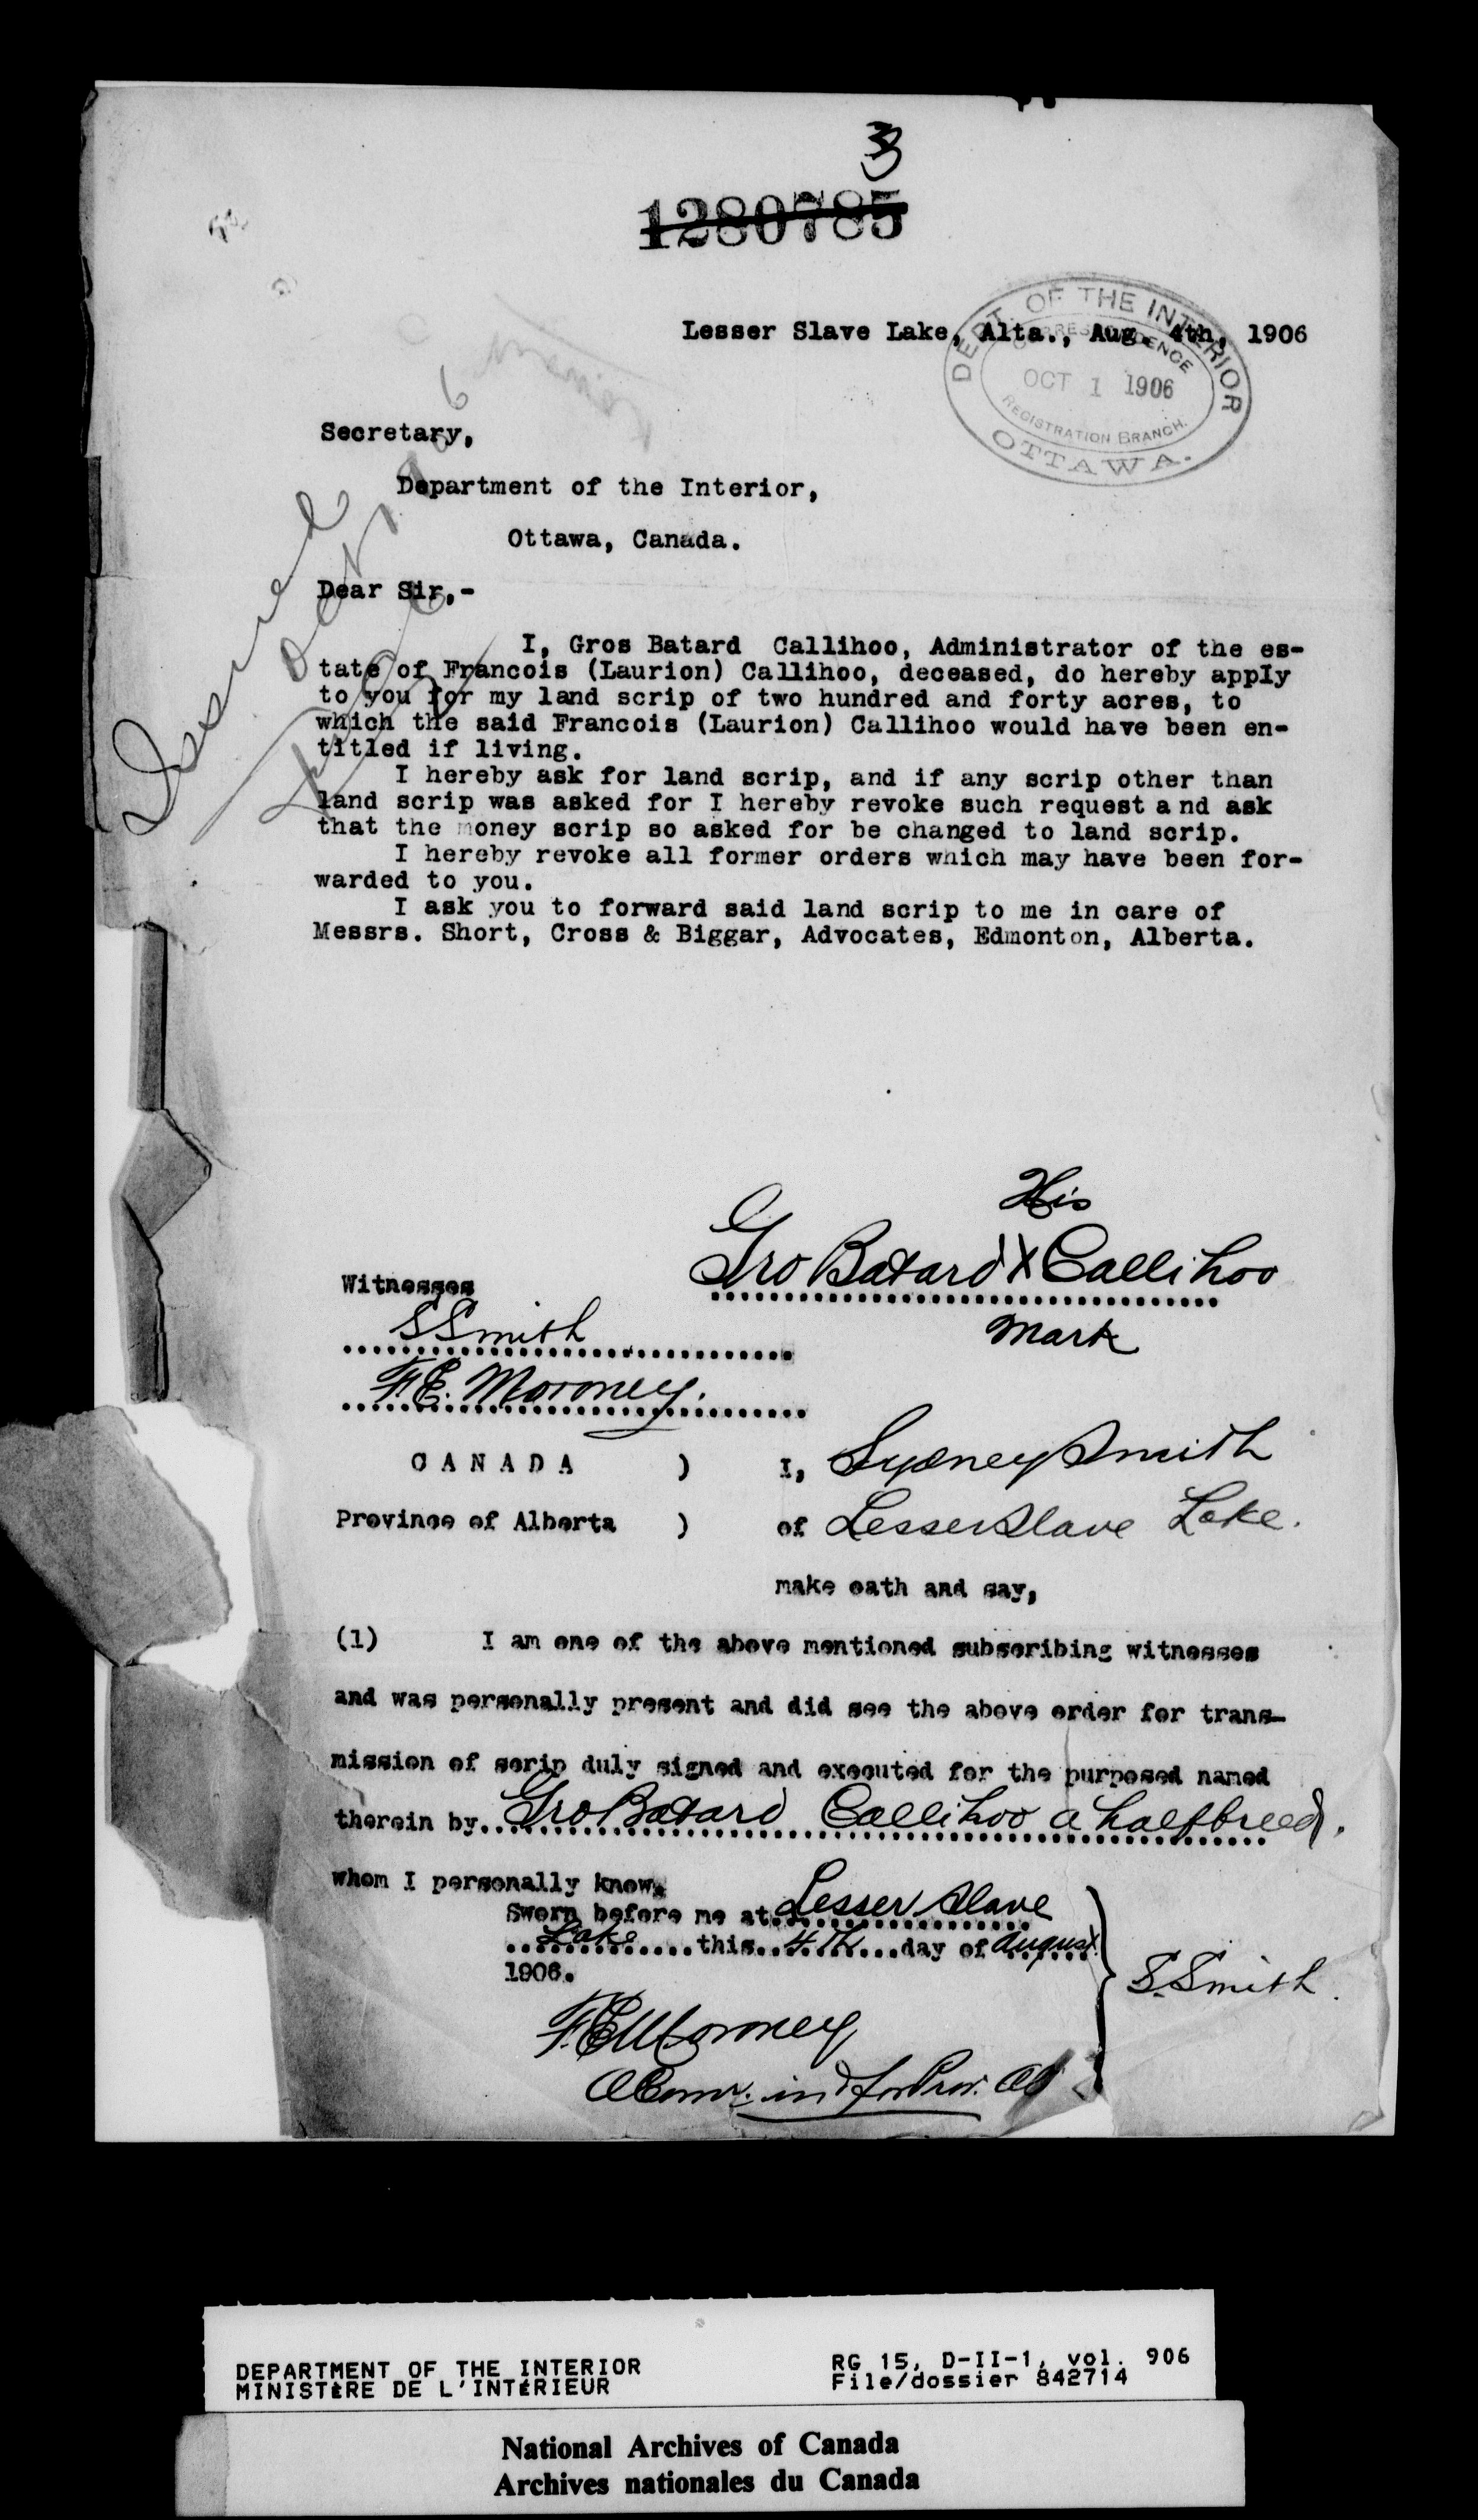 3
1280785
Lesser Slave Lake, Alta., Aug. 4th, 1906
DEPT. OF THE INTERIOR
CORRESPONDENCE
OCT 1 1906
REGISTRATION BRANCH.
OTTAWA.
Secretary,
Department of the Interior,
Ottawa, Canada.
Dear Sir,-
I, Gros Batard Callihoo, Administrator of the es-
tate of Francois (Laurion) Callihoo, deceased, do hereby apply
to you for my land scrip of two hundred and forty acres, to
which the said Francois (Laurion) Callihoo would have been en-
titled if living.
I hereby ask for land scrip, and if any scrip other than
land scrip was asked for I hereby revoke such request and ask
that the money scrip so asked for be changed to land scrip.
I hereby revoke all former orders which may have been for-
warded to you.
I ask you to forward said land scrip to me in care of
Messrs. Short, Cross & Biggar, Advocates, Edmonton, Alberta.
Issued
His
Gro Batard X Callihoo
Mark
Witnesses
S Smith
F.E. Moroney.
CANADA ) I, Sydney Smith
Province of Alberta ) of Lesser Slave Lake.
make oath and say,
(1) I am one of the above mentioned subscribing witnesses
and was personally present and did see the above order for trans-
mission of scrip duly signed and executed for the purposed named
therein by Gro Batard Callihoo a halfbreed.
whom I personally know.
Sworn before me at Lesser Slave
Lake this 4th day of August
1906.
S. Smith.
F.E. Moroney
A Comr. in & for Prov. Al
DEPARTMENT OF THE INTERIOR
MINISTÈRE DE L'INTÉRIEUR
RG 15, D-II-1, vol. 906
File/dossier 842714
National Archives of Canada
Archives nationales du Canada